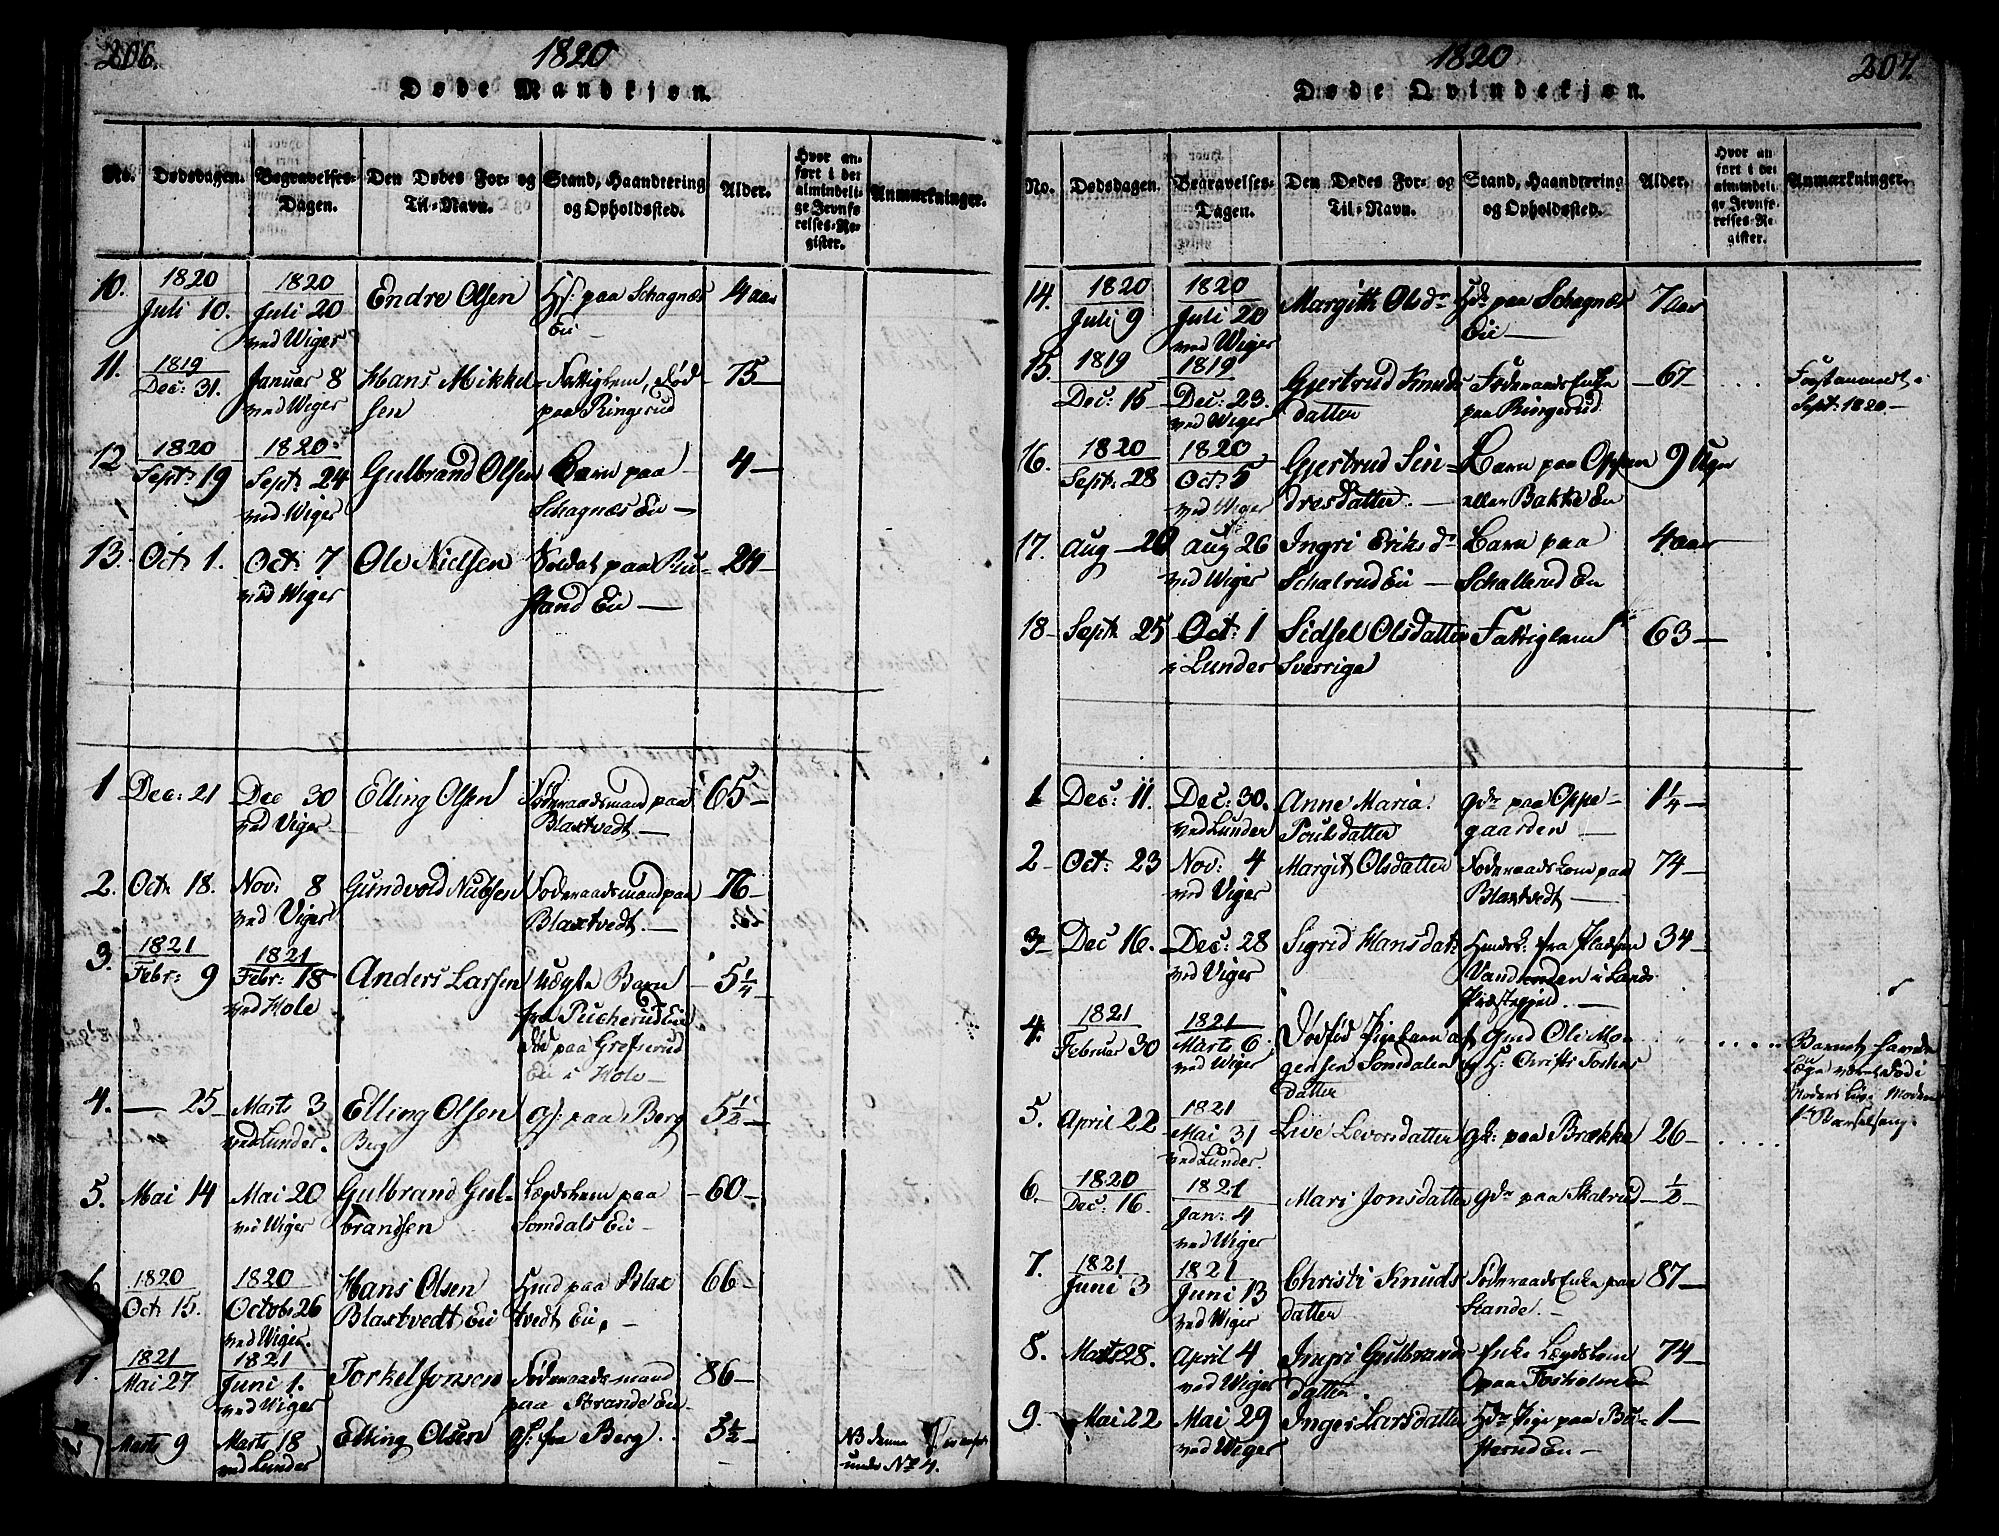 206.
1820
Døde Mandkjøn.
No. Dødsdagen. Begravelses-Dagen. Den Dødes For- og Til-Navn. Stand, Haandtering og Opholdssted. Alder. Hvor anført i det almindelige Jevnførelses-Register. Anmærkninger.
10. 1820 Juli 10. 1820 Juli 20 ved Wiger Endre Olsen Hs: paa Schagnæs Eie — 4 aar
11. 1819 Dec: 31. Januar 8 ved Wiger Hans Mikkelsen Fattiglem, død paa Ringerud 75
12 1820 Sept: 19 1820 Sept: 24 ved Wiger Gulbrand Olsen Barn paa Schagnæs Eie — 4
13. Oct: 1. Oct: 7 ved Wiger Ole Nielsen Soldat paa Rustand Eie — 24
1 Dec: 21 Dec 30 ved Viger Elling Olsen Føderaadsmand paa Blaxtvedt — 65
2. Oct: 18. Nov: 8 ved Viger Gundvold Føderaadsmand paa Blaxtvedt. — 76
3. 1821 Febr: 9 1821 Febr: 18 ved Hole Anders Larssen Uægte Barn fra Pucherud Eie Død paa Grefsrud Eie i Hole 5 1/4
4. — 25 Marts 3 ved Lunder. Elling Olsen Berg Gs: paa Berg 5 1/2
5. Mai 14 Mai 20 ved Wiger Gulbrand Gulbrandsen Lægdslem paa Somdals Eie — 60
6 1820 Oct: 15. 1820 Octob: 26 ved Wiger. Hans Olsen Blaxtvedt Eie Hmd paa Blaxtvedt Eie. — 66
7. 1821 Mai 27 1821 Juni 1. ved Wiger Torkel Jonsen Føderaadsmand paa Strande Eie 86
Marts 9 Marts 18 ved Lunder Elling Olsen Gs: fra Berg. 5 1/2 NB denne er anført under No 4.
207.
1820
Døde Qvindekjøn.
No. Dødsdagen. Begravelses-Dagen. Den Dødes For- og Til-Navn. Stand, Haandtering og Opholdssted. Alder. Hvor anført i det almindelige Jevnførelses-Register. Anmærkninger.
14. 1820 Juli 9 1820 Juli 20 ved Wiger Margith Olsdr Hdr paa Schagnæs Eie — 7 aar
15. 1819 Dec: 15 1819 Dec: 23. ved Wiger Gjertrud Knudsdatter Føderaads Enke paa Ringerud. 67 Først anmeldt i Sept: 1820. —
16. 1820 Sept: 28 1820 Oct: 5 ved Wiger Gjertrud Sindresdatter. — Barn paa Oppen eller Bakke Eie 9 Uger
17. Aug 20 Aug 26 ved Wiger Ingri Eriksdr Schalrud Eie — Barn paa Schallerud Eie 4 aar
18 Sept: 25 Oct: 1 i Lunder Sidsel Olsdatter Sverrige Fattiglem 63
1 Dec: 11. Dec: 30. ved Lunder Anne Maria Poulsdatter Gdr paa Oppegaarden — 1 1/4
2 Oct: 23 Nov: 4 ved Viger Margit Olsdatter Føderaads Kone paa Blaxtvedt — 74
3 Dec 16. Dec: 28 ved Viger Sigrid Hansdatr fra Pladsen Vand i Lands Præstegjeld. — 34
4. 1821 Februar 30 1821 Marts 6. ved Wiger Dødfød Pigebarn af Gmd Ole Mogensen Somdalen og H: Christi Torkelsdatter Barnet
5. April 22 1821 Mai 31 ved Lunder. Live Levorsdatter gk: paa Brække 26
6. 1820 Dec: 16. 1821 Jan: 4 ved Wiger Mari Jonsdatter Gdr paa Skalrud 1/2
7. 1821 Juni 3 1821 Juni 13 ved Wiger Christi Knudsdatter Føderaads Enke paa Stande. — 87
8. Marts 28. April 4 ved Wiger Ingri Gulbrandsdatter. Enke Lægdslem paa 74
9. Mai 22 Mai 29 ved Wiger Inger Larsdatter Hdr Pige paa Eie — 1